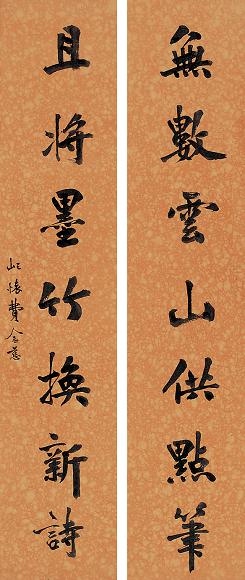 無數雲山供點筆
且將墨竹換新詩
屺懷費念慈